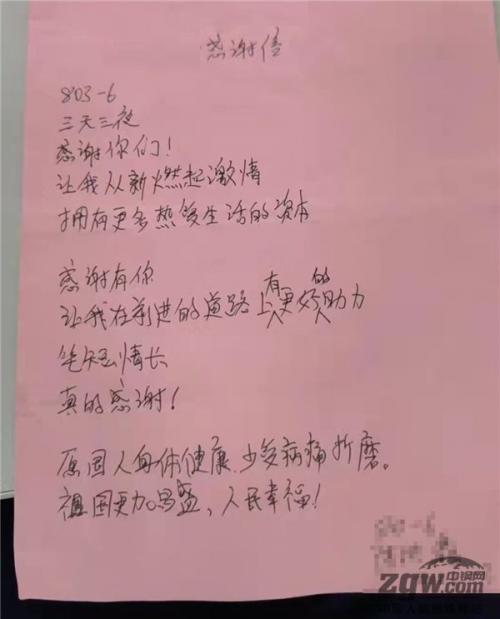 感谢信
803-6
三天三夜
感谢你们!
让我从新燃起激情
拥有更多热爱生活的资本
感谢有你
让我在前进的道路上有更好的助力
笔短情长
真的感谢!
愿国人身体健康.少受病痛折磨。
祖国更加昌盛、人民幸福!
中锅网
zgw.com